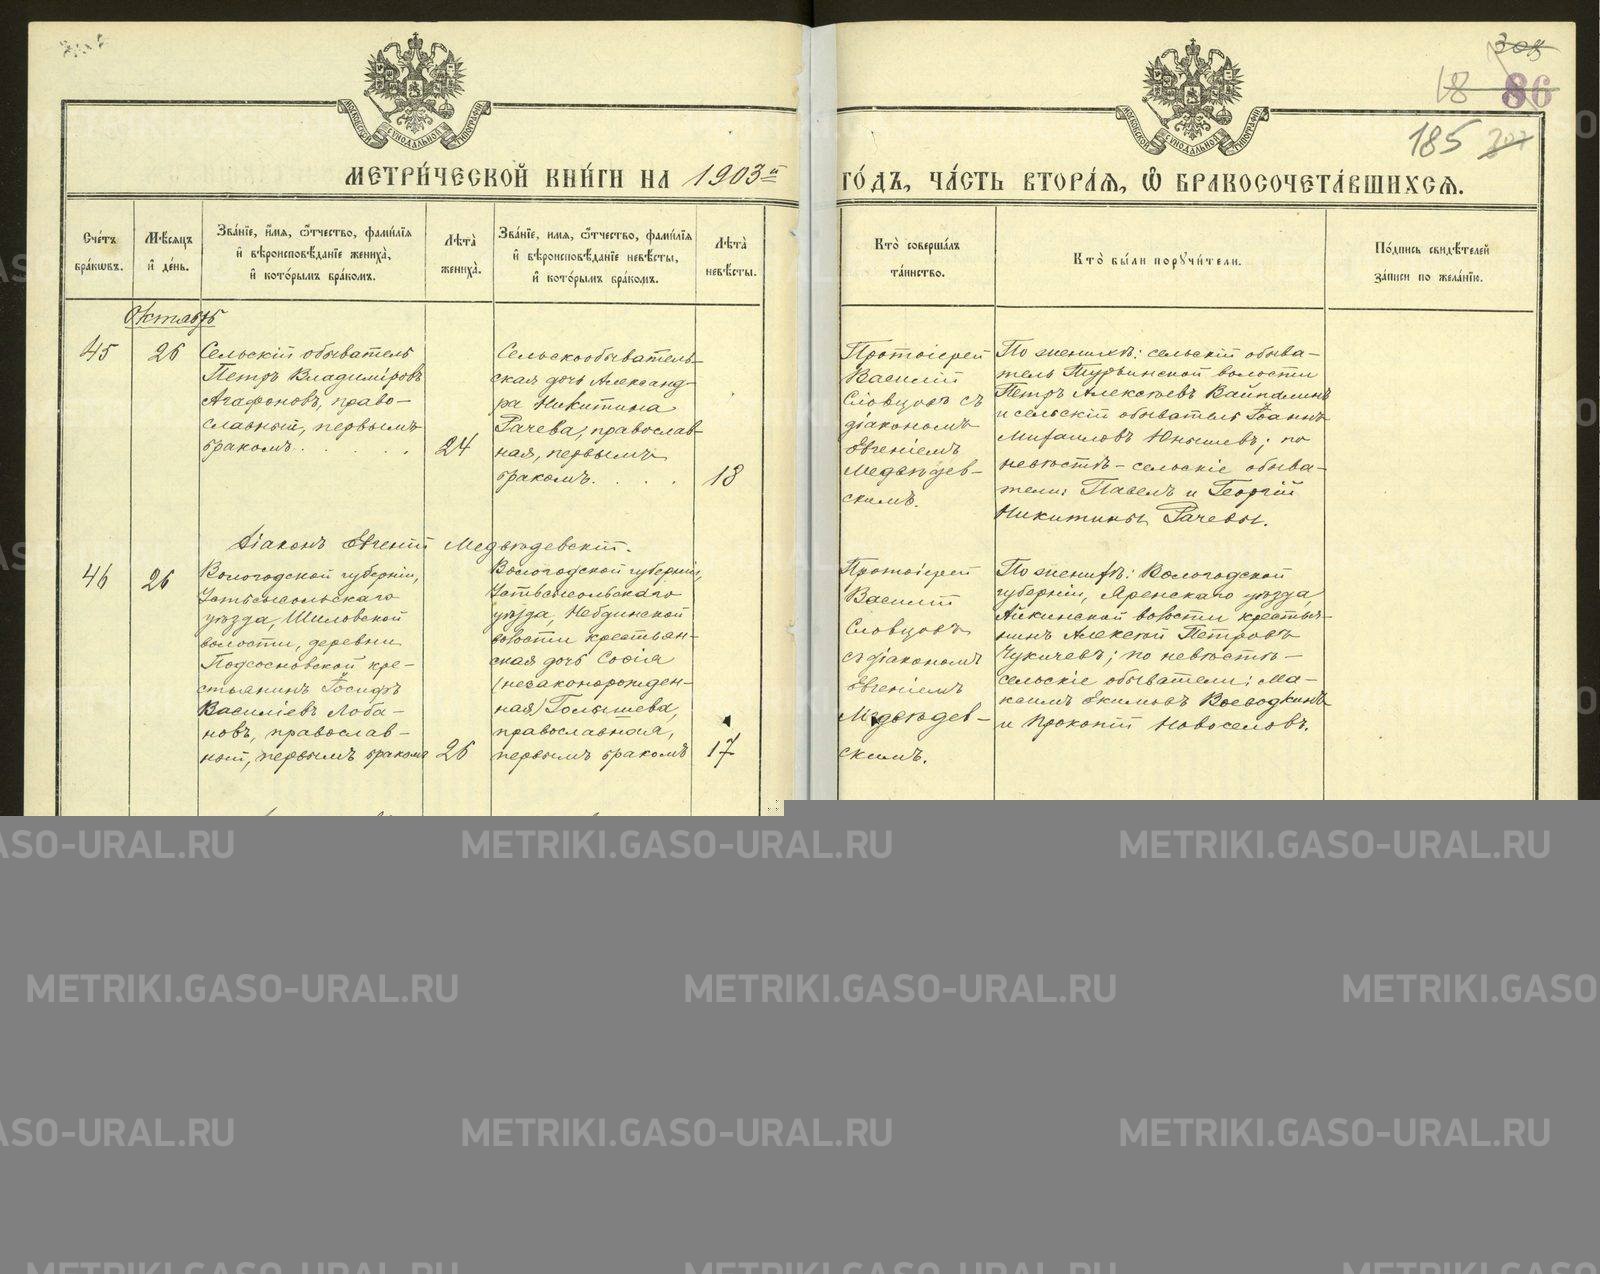 305
18 86
185 307
МОСКОВСКОЙ СѴНОДАЛЬНОЙ ТИПОГРАФІИ
МОСКОВСКОЙ СѴНОДАЛЬНОЙ ТИПОГРАФІИ
МЕТРИ́ЧЕСКОЙ КНИ́ГИ НА 1903й
ГО́ДЪ, ЧА́СТЬ ВТОРА́Я, Ѡ҆ БРАКОСОЧЕТА́ВШИХСЯ.
Сче́тъ
бра́кѡвъ.
Мѣ́сяцъ
и҆ де́нь.
Зва́нїе, и҆́мя, ѻ҆́тчество, фами́лїя
и҆ вѣроисповѣ́данїе жениха̀,
и҆ кото́рымъ бра́комъ.
Лѣ́та̀
жениха̀.
Зва́нїе, имя, ѻ҆́тчество, фами́лїя
и҆ вѣроисповѣ́данїе невѣ́сты,
и҆ кото́рымъ бра́комъ.
Лѣ́та̀
невѣ́сты.
Кто̀ соверша́лъ
та́инство.
Кто̀ бы́ли порꙋчи́тели.
По́дпись свидѣ́телей
за́писи по жела́нїю.
Октябрь
45
26
Сельскій обыватель
Петръ Владиміровъ
Агафоновъ, право-
славный, первымъ
бракомъ. . . . . .
24
Сельскообыватель-
ская дочь Александ-
ра Никитина
Рачева, православ-
ная, первымъ
бракомъ. . . .
18
Протоіерей
Василій
Словцовъ съ
діакономъ
Евгеніемъ
Медвѣдев-
скимъ.
По женихѣ: сельскій обыва-
тель Турьинской волости
Петръ Алексѣевъ
и сельскій обыватель Іоаннъ
Михаиловъ Юнышевъ; по
невѣстѣ - сельскіе обыва-
тели: Павелъ и Георгій
Никитины Рачевы.
Діаконъ Евгеній Медвѣдевскій.
46
26
Вологодской губерніи,
Устьсысольскаго
уѣзда, Шиловской
волости, деревни
Подсосновской кре-
стьянинъ Іосифъ
Василіевъ Лоба-
новъ, православ-
ный, первымъ бракомъ
26
Вологодской губерніи,
Устьсысольскаго
уѣзда, Небдинской
волости крестьян-
ская дочь Софія
(незаконорожден-
ная) Голышева,
православная,
первымъ бракомъ
17
Протоіерей
Василій
Словцовъ
съ діакономъ
Евгеніемъ
Медвѣдев-
скимъ.
По женихѣ: Вологодской
губерніи, Яренскаго уѣзда,
Айкинской волости кресть-
нинъ Алексѣй Петровъ
Чукичевъ; по невѣстѣ -
сельскіе обыватели: Ма-
ксимъ Екимовъ Воеводкинъ
и Прокопій Новоселовъ.
METRIKI.GASO-URAL.RU
METRIKI.GASO-URAL.RU
METRIKI.GASO-URAL.RU
METRIKI.GASO-URAL.RU
METRIKI.GASO-URAL.RU
METRIKI.GASO-URAL.RU
METRIKI.GASO-URAL.RU
METRIKI.GASO-URAL.RU
METRIKI.GASO-URAL.RU